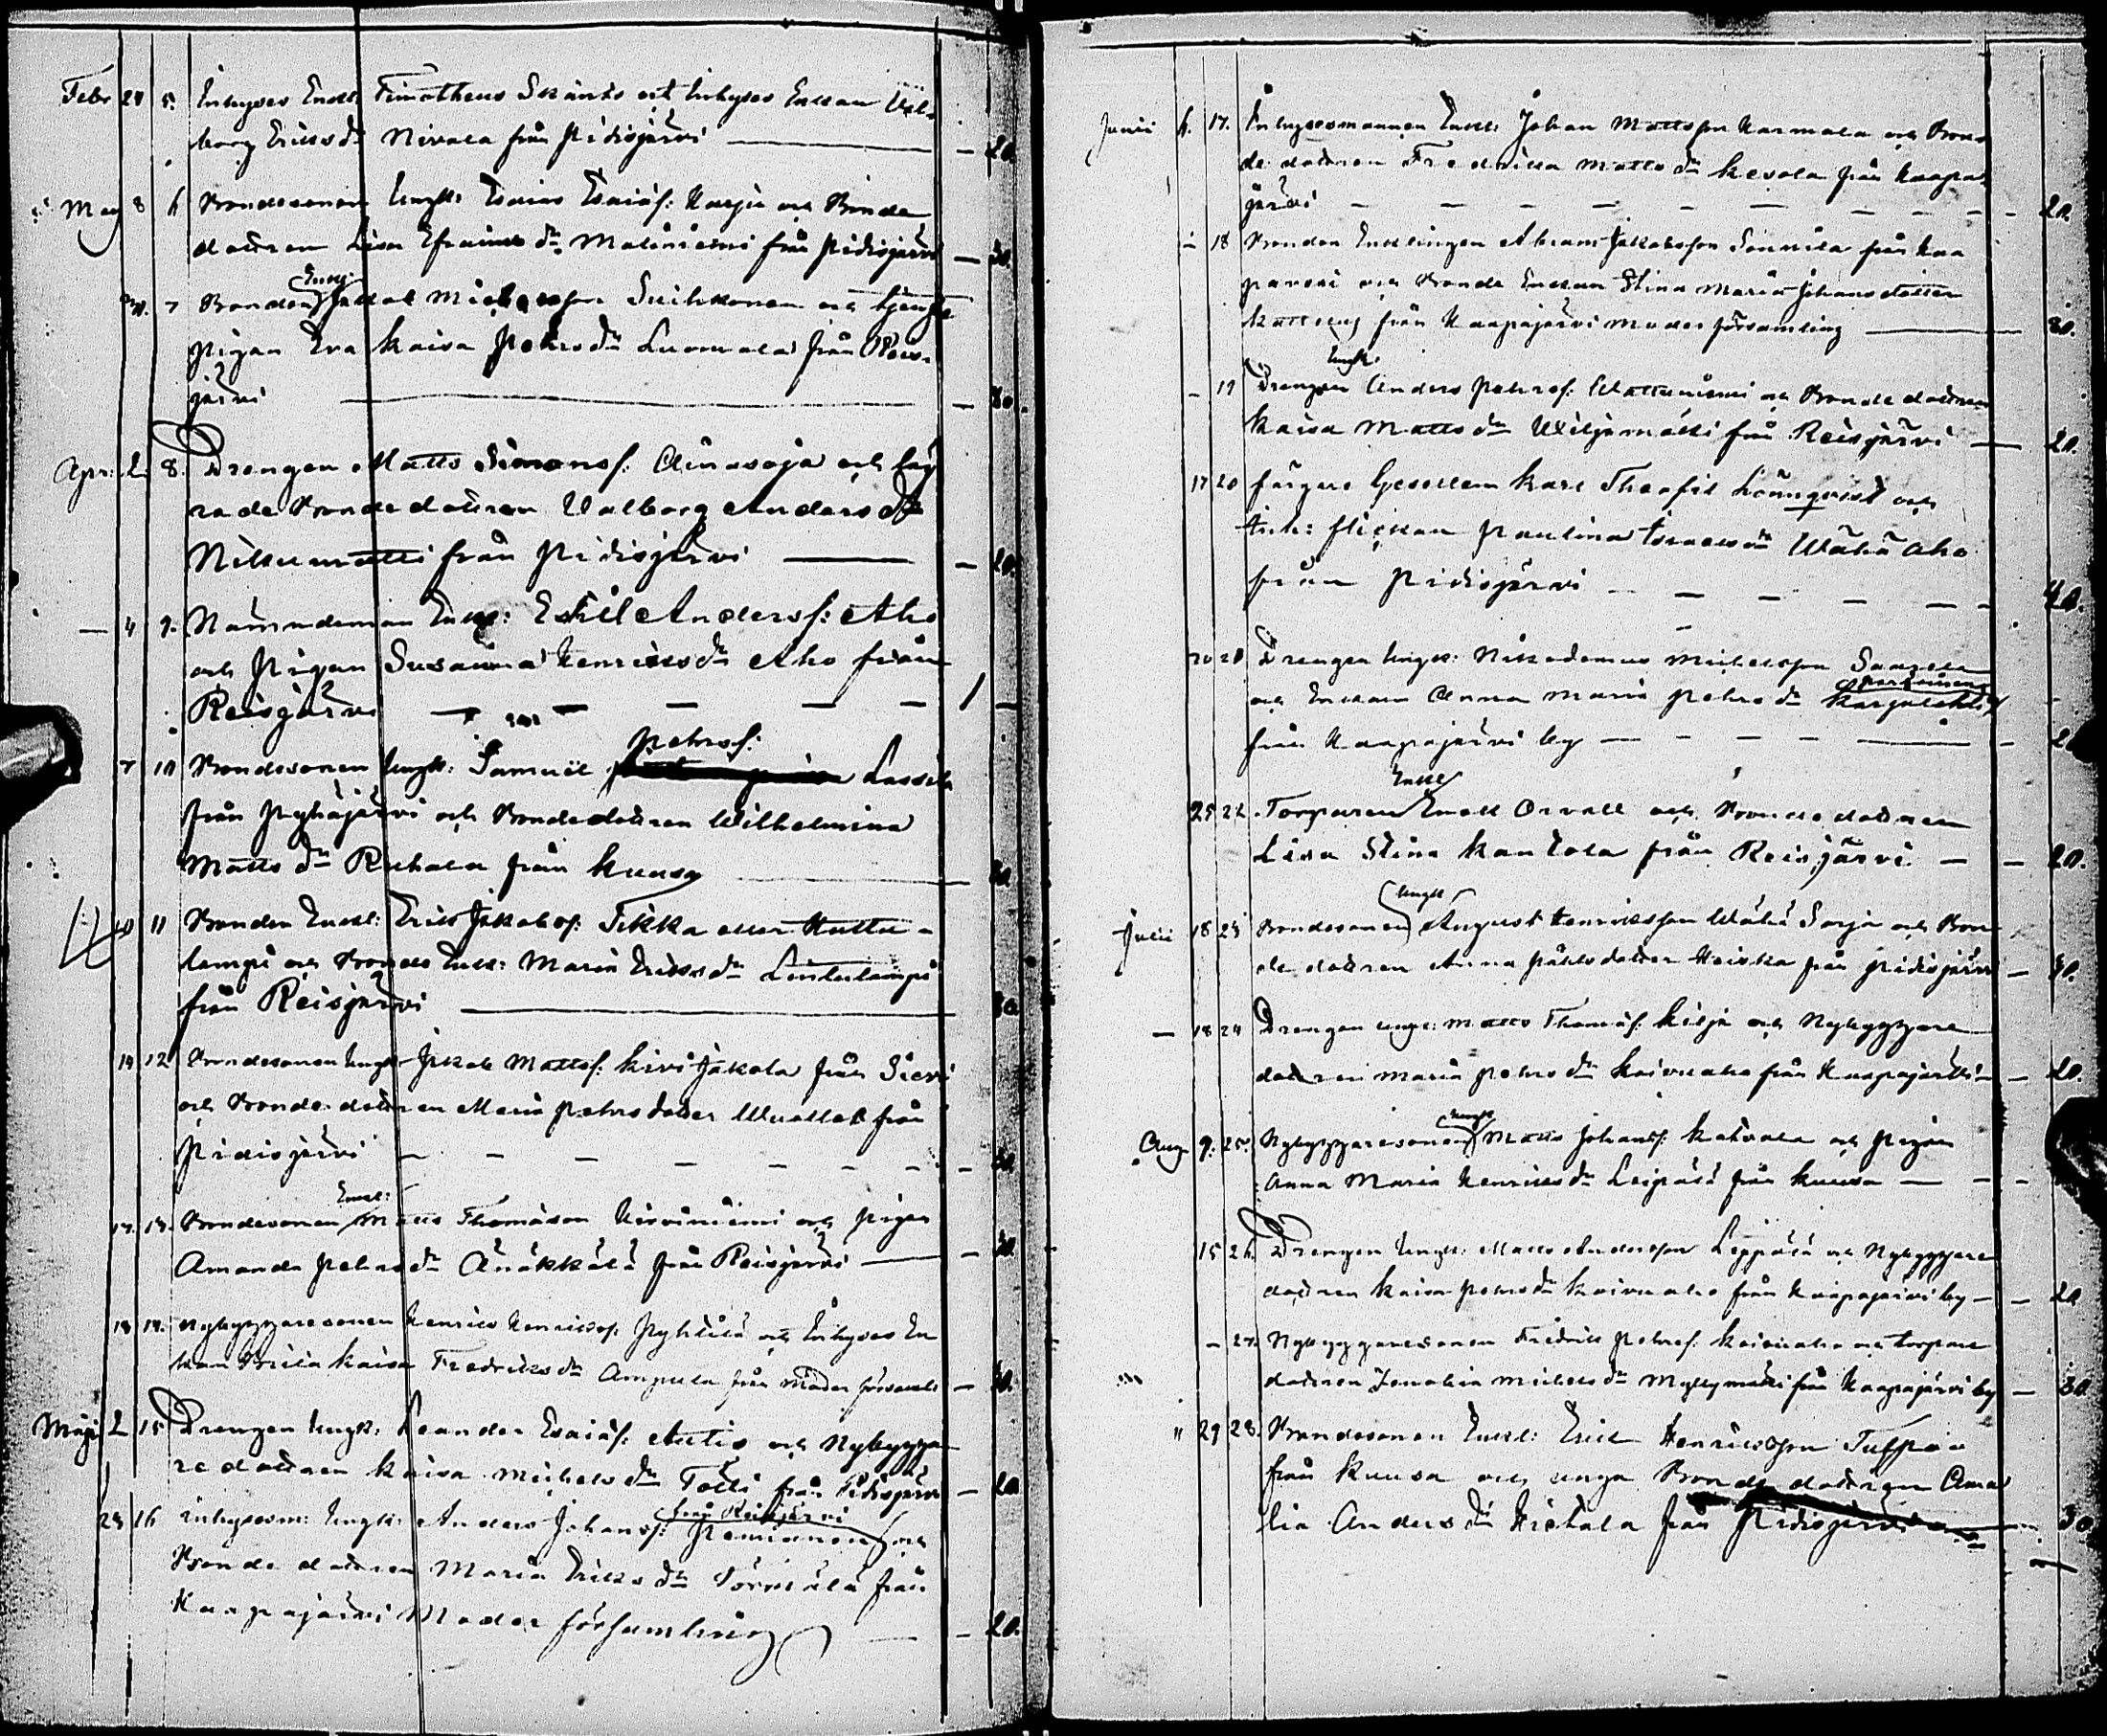 Febr 24 5. Inhyses Enkl. Timotheus Skants och Inhyses Enkan Val-
borg Eriksdr Nivala från Pidisjärvi — 20
May 8 6 Bondesonen Ungk: Esaias Esaiäs: Karju och Bonde
dottren Lisa Efraimsdr Maliniemi från Pidisjärvi — 30.
Enkl
30. 7 Bonden Jakob Michelsson Suihkonen och tjenste
pigan Eva Kaisa Pehrsdr Luomala från Reis-
järvi — 80.
Apr: 2. 8. Drengen Matts Simonss: Ainasoja och
rade Bondedottren Valborg Andersdr
Niskamatti från Pidisjärvi — 20.
— 4 9. Nämndeman Enkl: Eskil Anderss: Aho
och Pigan Susanna Henriksdr Aho från
Reisjärvi — — — — 1 —
Pehrss:
7 10 Bondesonen Ungk: Samuel Lassila
från Pyhäjärvi och Bondedottren Wilhelmina
Matts dr Ruhala från Kuusa
10 11 Bonden Enkl: Erik Jakobss: Tikka eller Kutu-
lampi och Bonde Enk: Maria Eriksdr Lintulampi
från Reisjärvi — 30
14 12 Bondesonen Ungk Jakob Mattss: Kivijakola från Sievi
och Bondedottren Maria Pehrsdotter Wuollet från
Pidisjärvi — — — — — 30
Enkl:
17. 13. Bondesonen Matts Thomasson Kirviniemi och Pigan
Amanda Pehrsdr Änäkkälä från Reisjärvi — 20.
18 14. Nybyggaresonen Henrik Henrikss: Pyhälä och Inhyses En
kan Brita Kaisa Fredriksdr Ampula från Moder församl: — 20.
Maji 2 15 Drengen Ungk: Leander Esaiäs: Autio och Nybygga-
re dottren Kaisa Michelsdr Tölli från Pidisjärvi — 20
från Reisjärvi
23 16 Inhysesm: Ungk: Anders Johanss: och
Bonde dottren Maria Eriksdr Törmälä från
Haapajärvi Moder församling — 20.
Junii 6. 17. Inhysesmannen Enkl: Johan Mattsson Karmala och Bon-
de dottren Fredrika Matts dr Kesola från Haapa-
järvi — — — — — — — 20.
— 18 Bonden Enklingen Abram Jakobsson Sonnila från Haa
pavesi och Bonde Enkan Stina Maria Johansdotter
från Haapajärvi Moder församling — 30.
Ungk.
— 19 Drengen Anders Pehrss: Wattuniemi och Bonde dottren
Kaisa Matts dr Wiljamatti från Reisjärvi — 20.
17 20 Färgare Gesellen Karl Theofil Lönnqvist och
Inh: flickan Paulina Israelsdr Wähä Aho
från Pidisjärvi — — — — — 40.
20 21 Drengen Ungk: Nikodemus Michelsson Saarela
och Enkan Anna Maria Pehrs dr Karjalahti
från Haapajärvi by — — — — 2
Enkl
25 22. Torparen Emell Orvall och Bonde dottren
Lisa Stina Kantola från Reisjärvi — — 20.
Ungk
Julii 18 23 Bondesonen August Henriksson Wähä Sarja och Bon-
de dottren Anna Påhlsdotter Heiska från Pidisjärvi — 30.
— 18 24 Drengen Ungk: Matts Thomäs: Kilja och Nybyggare
dottren Maria Pehrs dr Koivuaho från Haapajärvi — 20.
Ungk
Aug 9. 25. Nybyggaresonen Matts Johanss: Katvala och Pigan
Anna Maria Henriksdr Leipälä från Kuusa — — —
15 26 Drengen Ungk: Matts Andersson Leppälä och Nybyggare
dottren Kaisa Pehrsdr Koivuaho från Haapajärvi by — — 20
— 27 Nybyggaresonen Fredrik Pehrss: Koivuaho och torpare
dottren Jemalia Michelsdr Myllymäki från Haapajärvi by — 30.
" 29 28. Bondesonen Enkl: Erik Henriksson
från Kuusa och unga Bonde dottren Ama
lia Anders dr Hietala från Pidisjärvi — 30